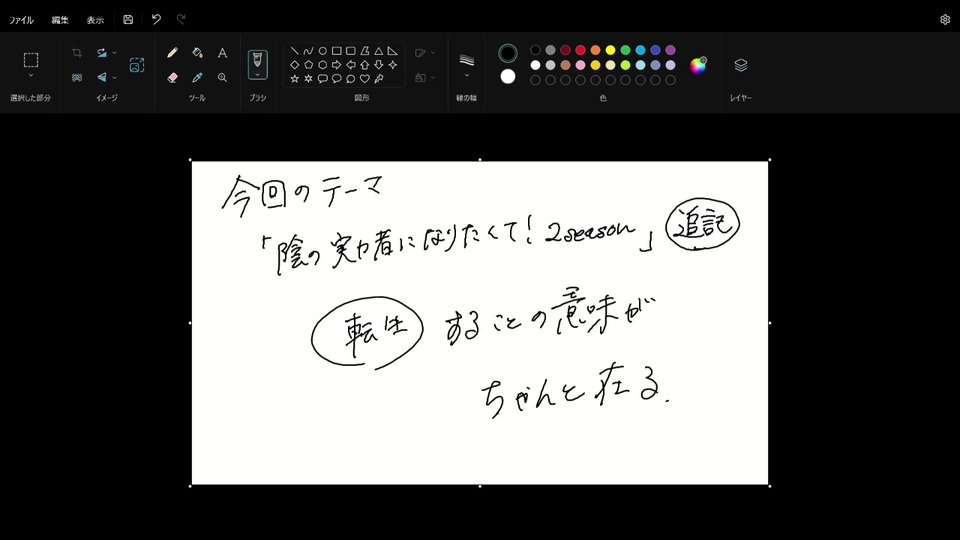 ファイル 編集 表示
選択した部分 イメージ ツール ブラシ 図形 線の幅 色 レイヤー
今回のテーマ
「陰の実力者になりたくて! 2season」 追記
転生 することの意味が
ちゃんと在る.